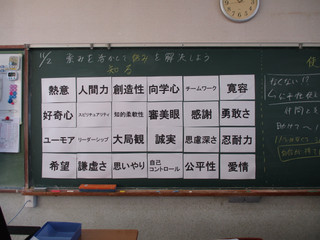 11/2 強みを活かして悩みを解決しよう
熱意 人間力 創造性 向学心 チームワーク 寛容
好奇心 スピリチュアリティ 知的柔軟性 審美眼 感謝 勇敢さ
ユーモア リーダーシップ 大局観 誠実 思慮深さ 忍耐力
希望 謙虚さ 思いやり 自己コントロール 公平性 愛情